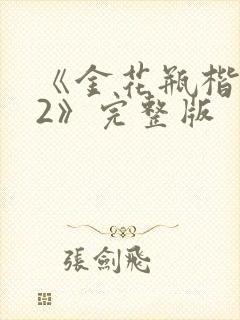 《金花瓶楷
2》完整版
張劍飛